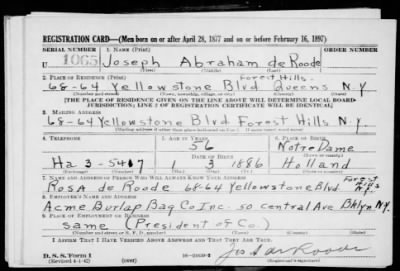 REGISTRATION CARD—(Men born on or after April 28, 1877 and on or before February 16, 1897)
SERIAL NUMBER 1. NAME (Print) ORDER NUMBER
U 1065 Joseph Abraham de Roode
(First) (Middle) (Last)
2. PLACE OF RESIDENCE (Print) Forest Hills.
68-64 Yellowstone Blvd Queens N.Y
(Number and street) (Town, township, village, or city) (County) (State)
[THE PLACE OF RESIDENCE GIVEN ON THE LINE ABOVE WILL DETERMINE LOCAL BOARD
JURISDICTION; LINE 2 OF REGISTRATION CERTIFICATE WILL BE IDENTICAL]
3. MAILING ADDRESS
68-64 Yellowstone Blvd Forest Hills N.Y
(Mailing address if other than place indicated on line 2. If same insert word same)
4. TELEPHONE 5. AGE IN YEARS 6. PLACE OF BIRTH
56 Notre Dame
DATE OF BIRTH (Town or county)
Ha 3-5417 1 3 1886 Holland
(Exchange) (Number) (Mo.) (Day) (Yr.) (State or country)
7. NAME AND ADDRESS OF PERSON WHO WILL ALWAYS KNOW YOUR ADDRESS Forest Hills
Rosa de Roode 68-64 Yellowstone Blvd. N.Y
8. EMPLOYER'S NAME AND ADDRESS
Acme Burlap Bag Co Inc. 50 Central Ave Bklyn N.Y
9. PLACE OF EMPLOYMENT OR BUSINESS
same (President of Co.)
(Number and street or R. F. D. number) (Town) (County) (State)
I AFFIRM THAT I HAVE VERIFIED ABOVE ANSWERS AND THAT THEY ARE TRUE.
D. S. S. Form 1
(Revised 4-1-42)